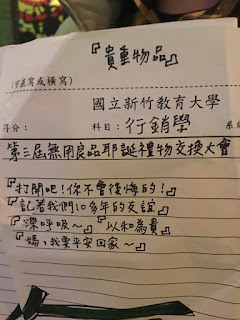 『貴重物品』
(可直寫或橫寫)
國立新竹教育大學
得分： 科目：行銷學 系
第三屆無用良品耶誕禮物交換大會
『打開吧！你不會後悔的！』
『記著我們10多年的友誼』
『深呼吸～』『以和為貴』
『媽，我要平安回家～』